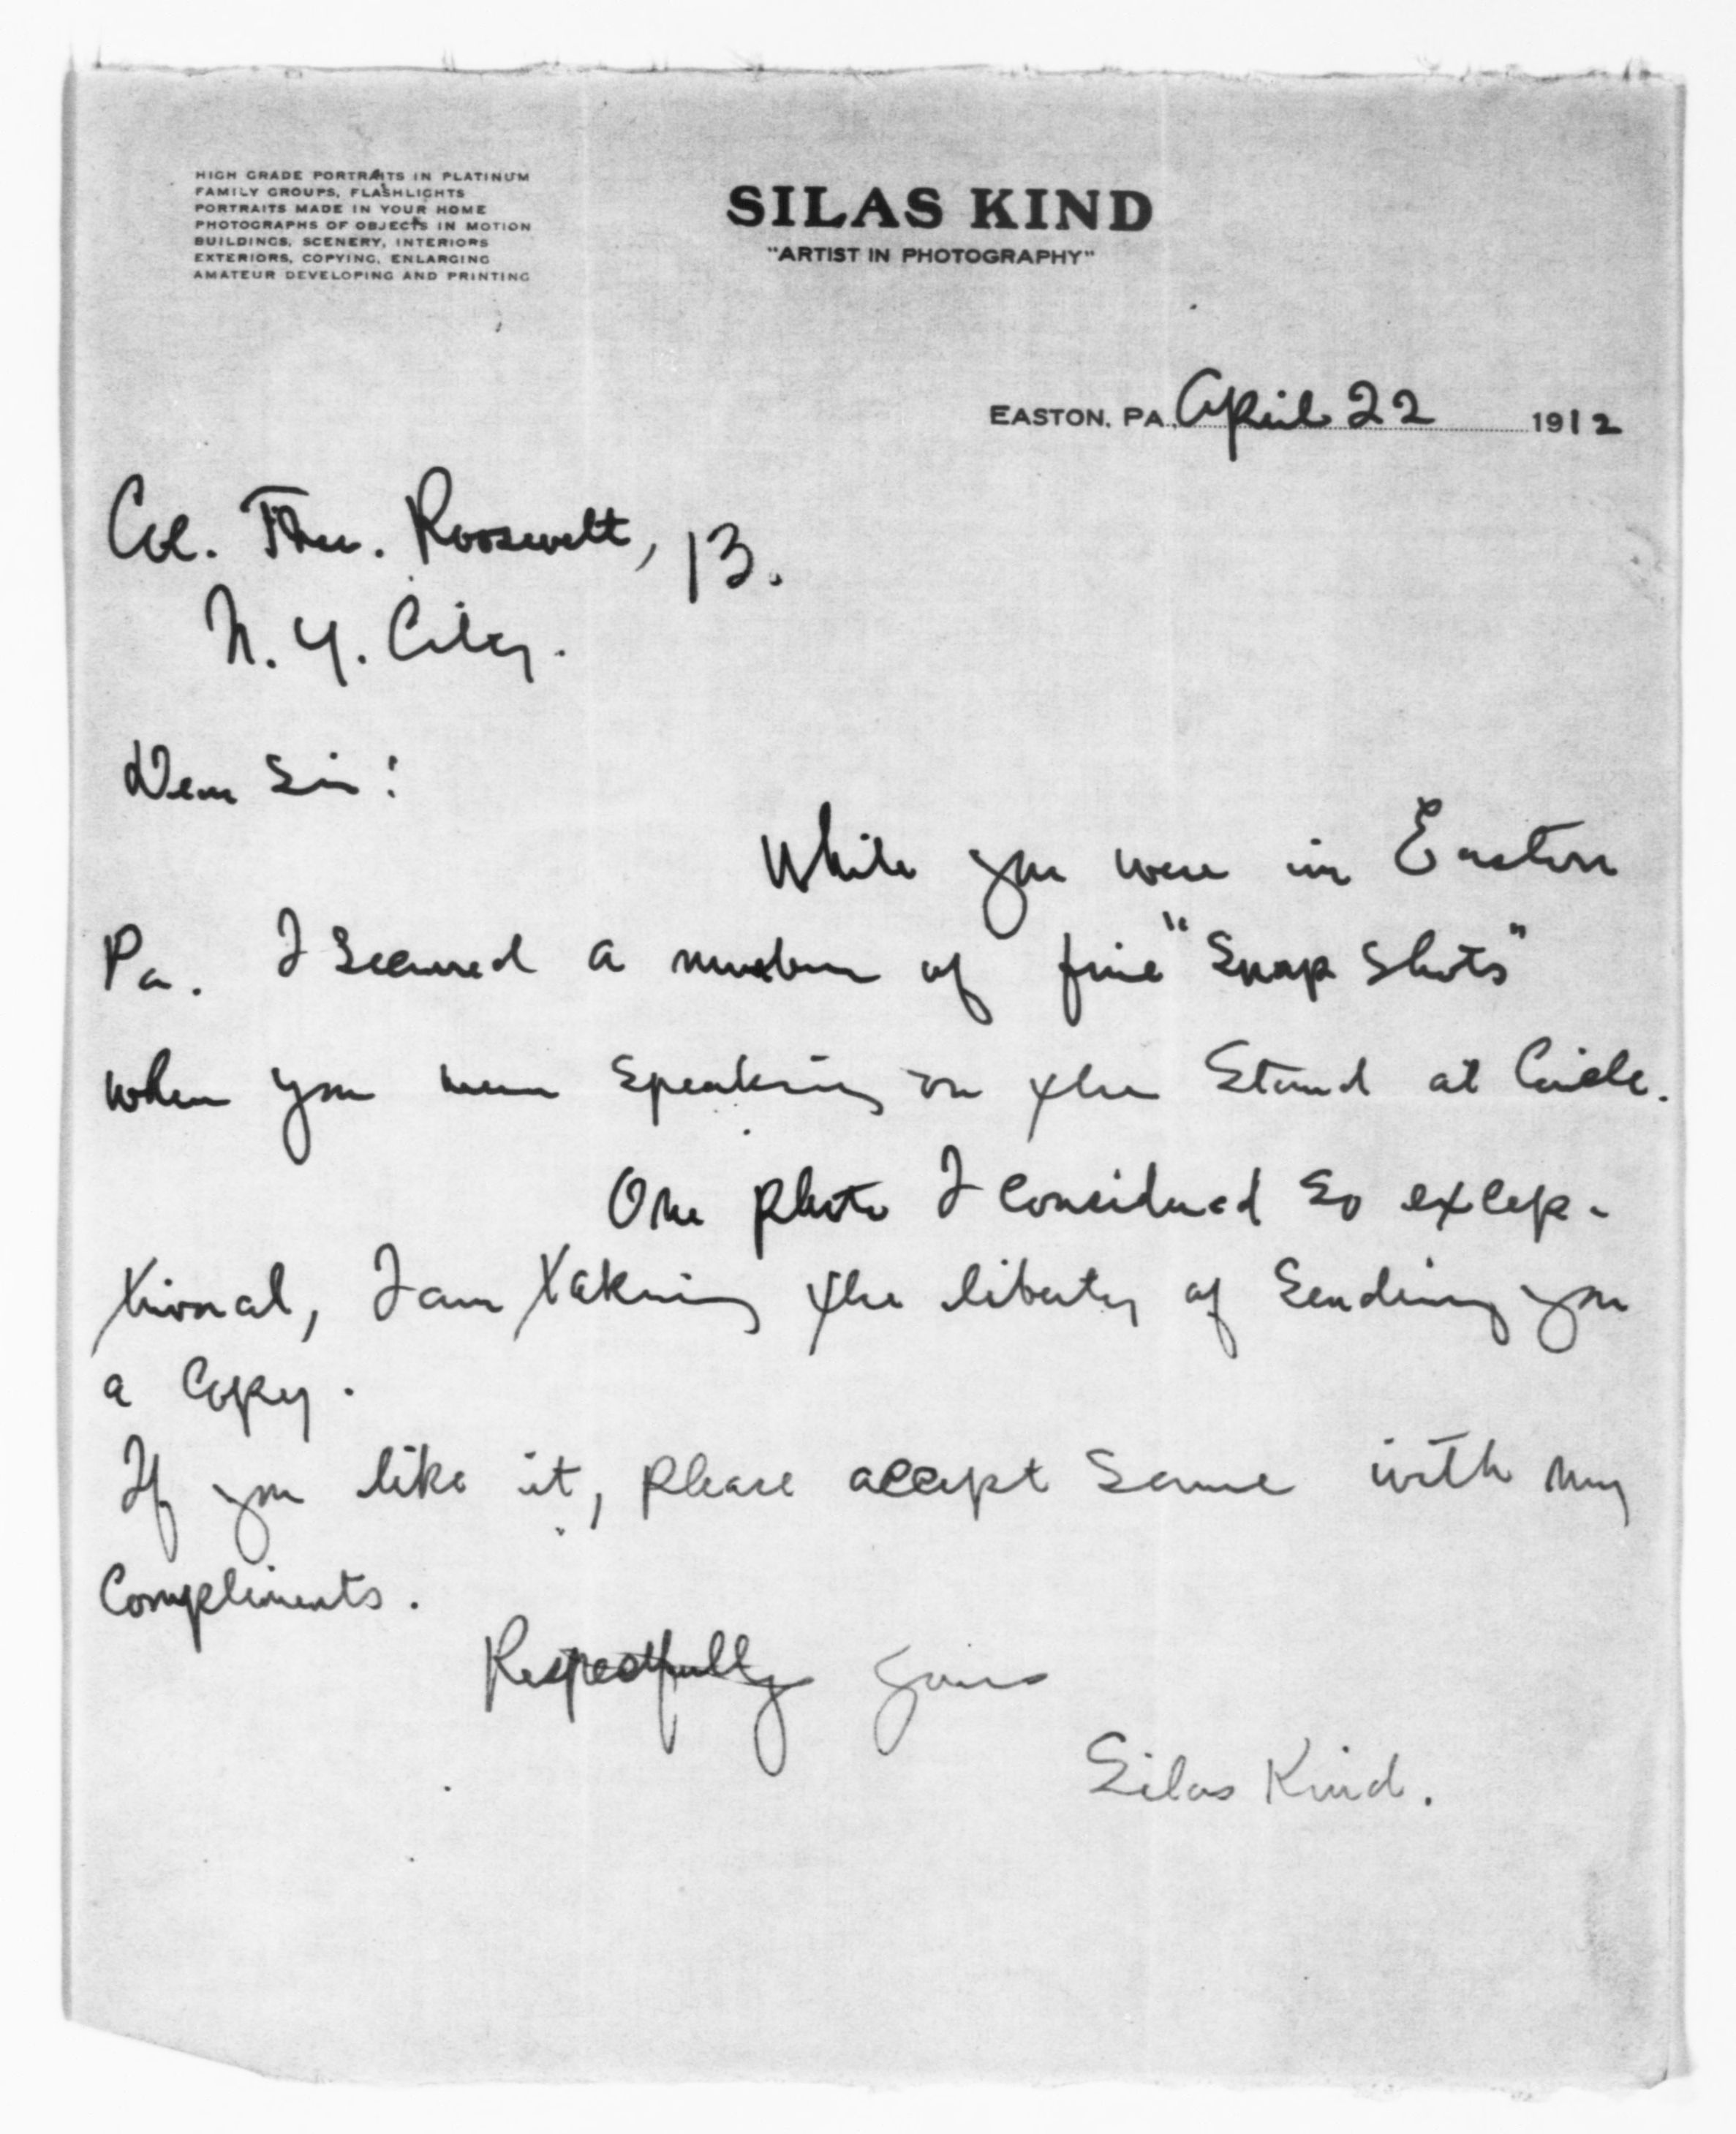 HIGH GRADE PORTRAITS IN PLATINUM
FAMILY GROUPS, FLASHLIGHTS
PORTRAITS MADE IN YOUR HOME
PHOTOGRAPHS OF OBJECTS IN MOTION
BUILDINGS, SCENERY, INTERIORS
EXTERIORS, COPYING, ENLARGING
AMATEUR DEVELOPING AND PRINTING
SILAS KIND
"ARTIST IN PHOTOGRAPHY"
EASTON, PA. April 22 1912
Col. Theo. Roosevelt, 13.
N. Y. City.
Dear Sir:
While you were in Easton
Pa. I secured a number of fine "Snap Shots"
when you were speaking on the Stand at Circle.
One photo I considered so excep-
tional, I am taking the liberty of sending you
a copy.
If you like it, please accept same with my
Compliments.
Respectfully yours
Silas Kind.